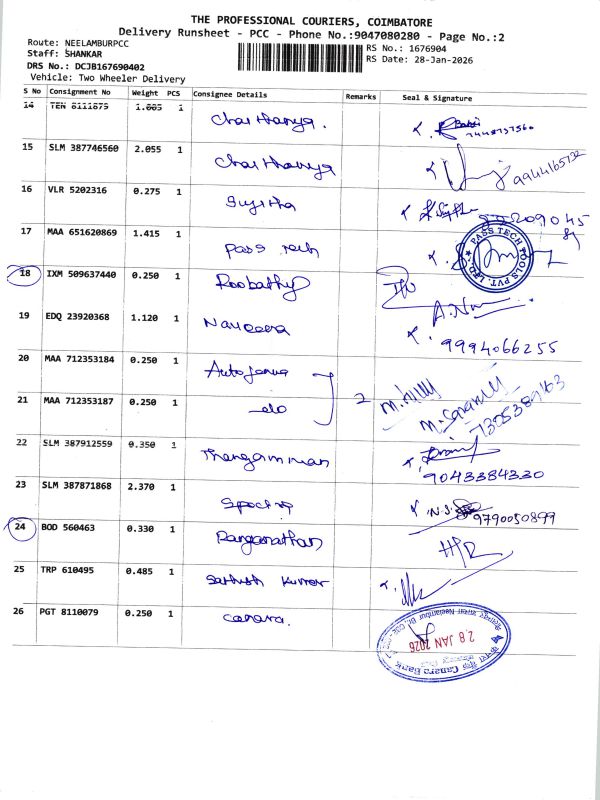 THE PROFESSIONAL COURIERS, COIMBATORE
Delivery Runsheet - PCC - Phone No.:9047080280 - Page No.:2
Route: NEELAMBURPCC
Staff: SHANKAR
DRS No.: DCJB167690402
Vehicle: Two Wheeler Delivery
RS No.: 1676904
RS Date: 28-Jan-2026
S No Consignment No Weight PCS Consignee Details Remarks Seal & Signature
14 TEN 8111879 1.885 1 Chaithanya.
15 SLM 387746560 2.055 1 Chaithanya 9944165732
16 VLR 5202316 0.275 1 Sujitha
17 MAA 651620869 1.415 1 Pass Tech PASS TECH TOOLS PVT. LTD.
18 IXM 509637440 0.250 1 Roobathy
19 EDQ 23920368 1.120 1 Naveena 9994066255
20 MAA 712353184 0.250 1
21 MAA 712353187 0.250 1 2 7305389163
22 SLM 387912559 0.350 1 Thangamman 9043384330
23 SLM 387871868 2.370 1 N.S 9790050899
24 BOD 560463 0.330 1 Ranganathan
25 TRP 610495 0.485 1 Sathish Kumar
26 PGT 8110079 0.250 1 Canara.
28 JAN 2026
Canara Bank